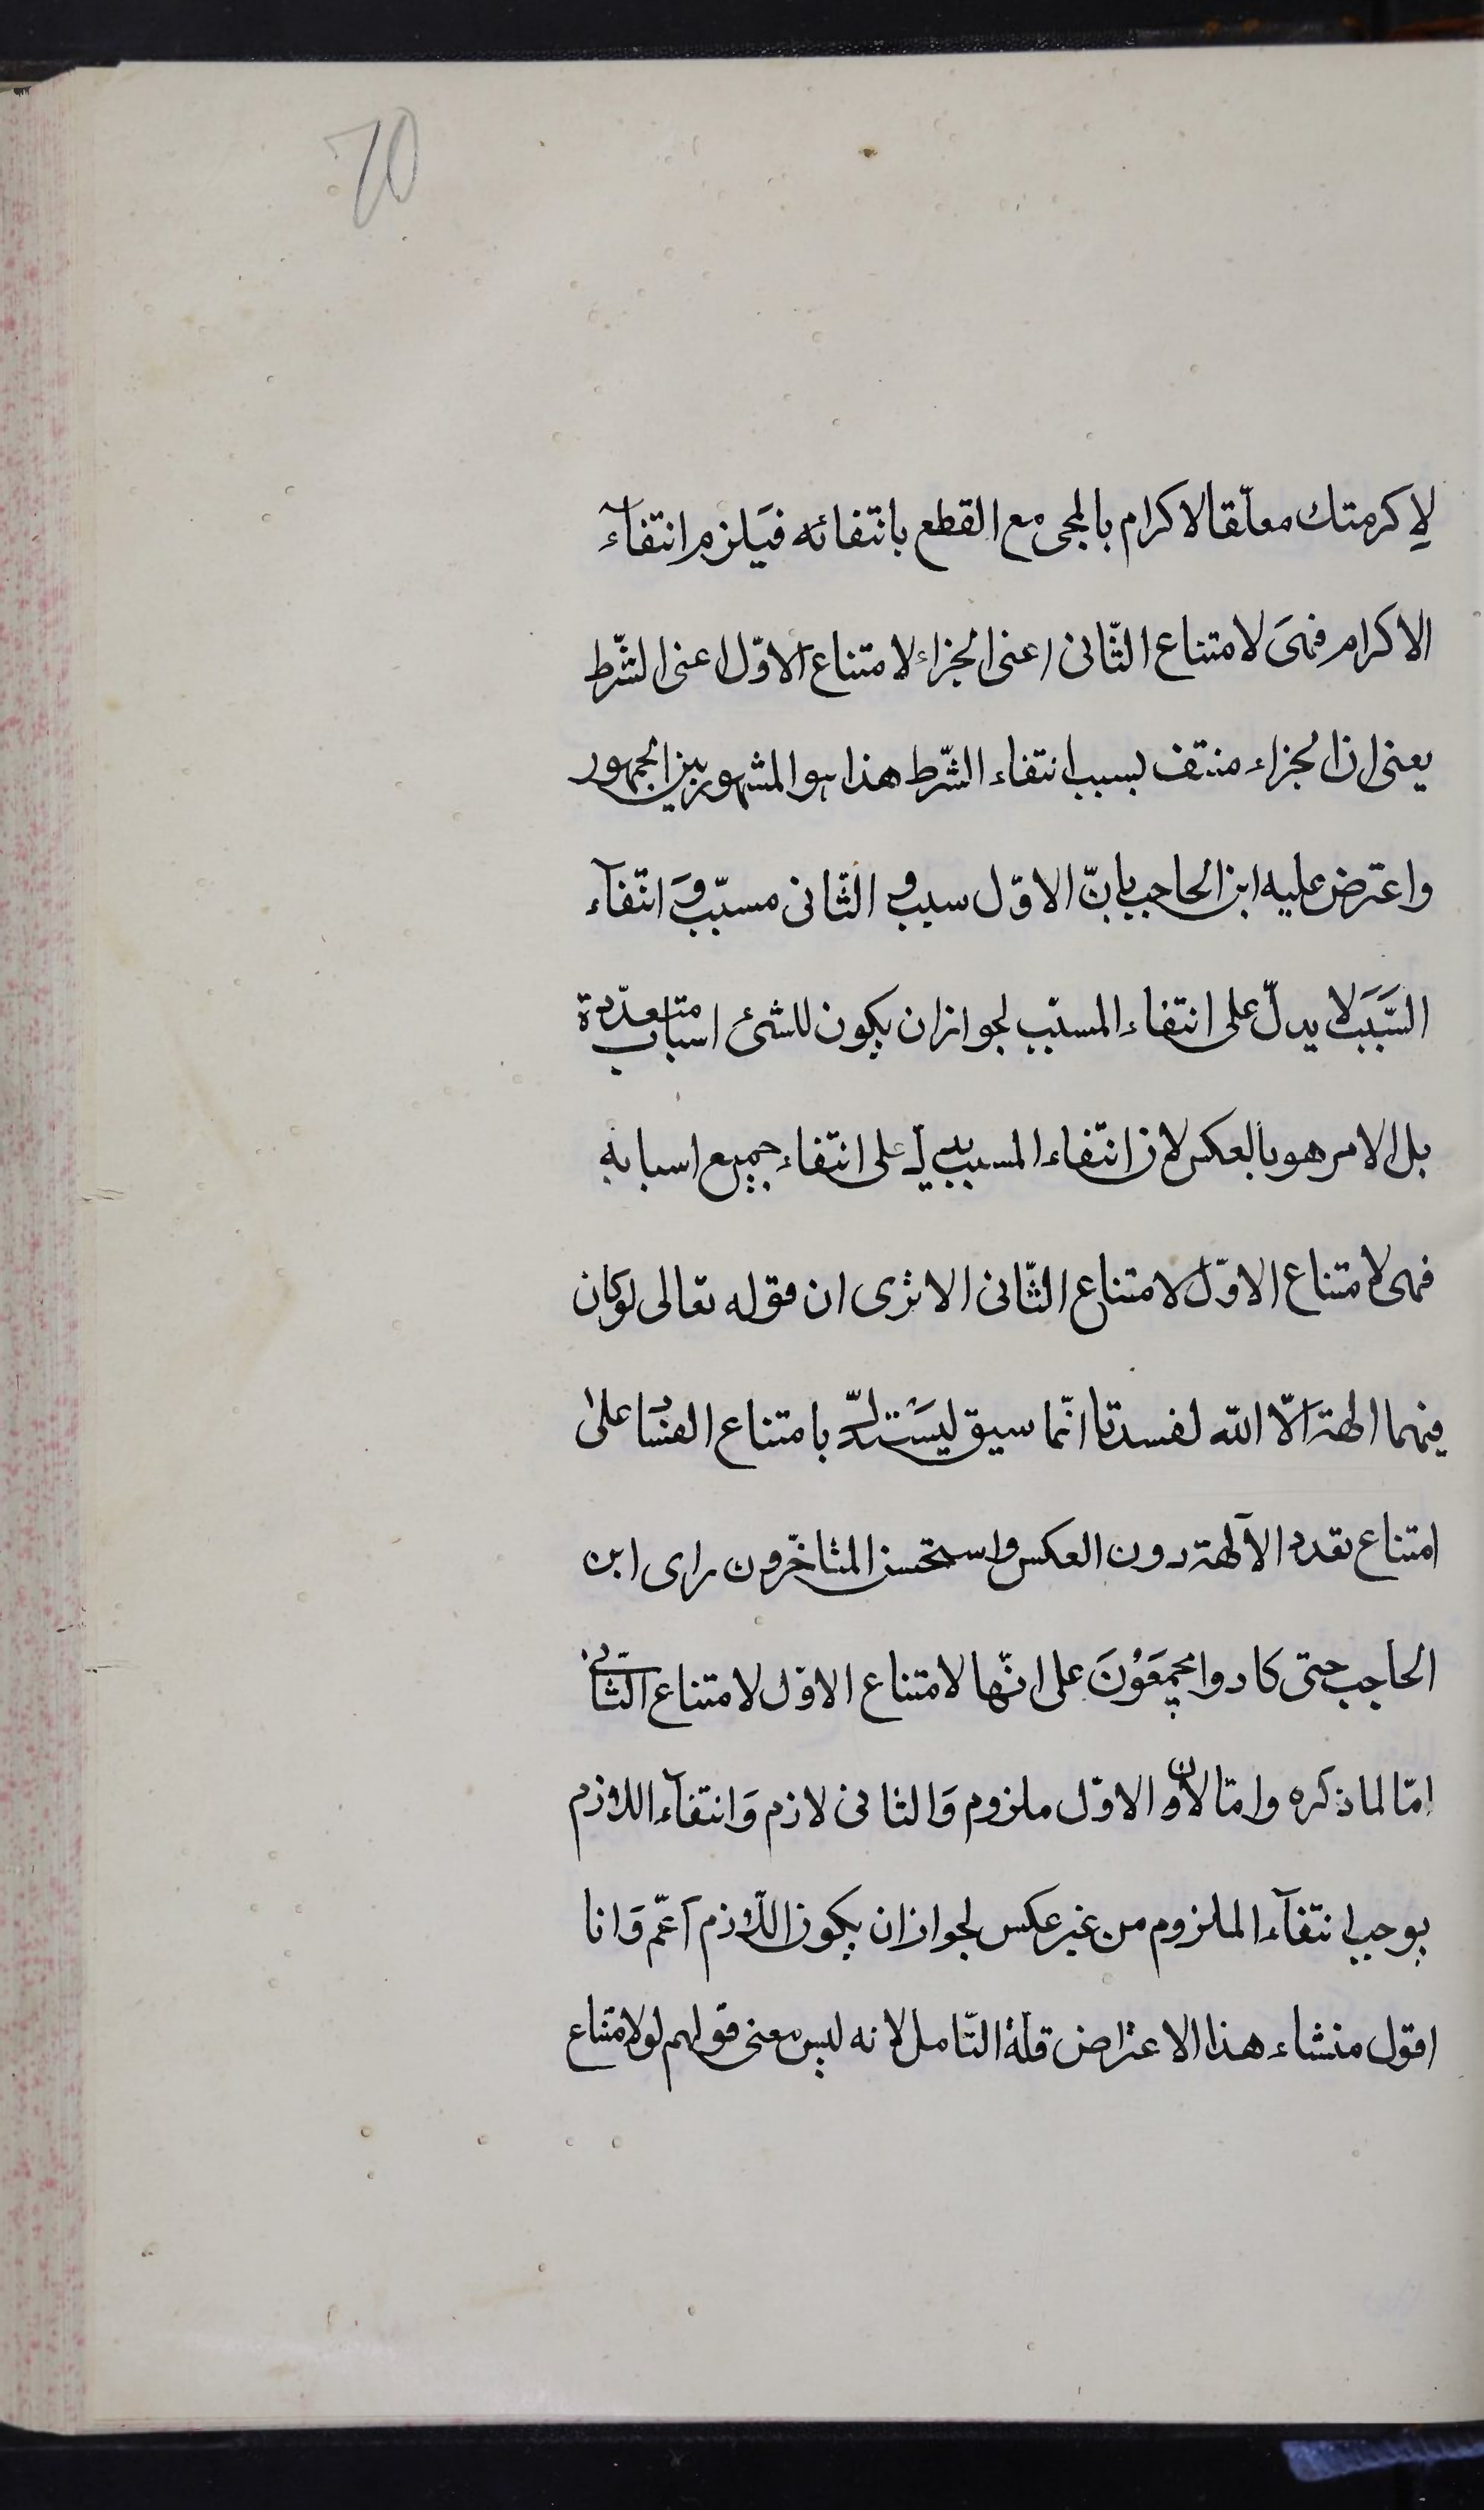 70
لاكرمتك معلّقا الاكرام بالمجئ مع القطع بانتفائه فيَلزم انتفآء
الاكرام فهىَ لامتناع الثّانى اعنى الجزاء لامتناع الاوّل اعنى الشّرط
يعنى ان الجزاء منتف بسبب انتفاء الشّرط هذا هو المشهور بين الجمهور
واعترض عليه ابن الحاجب بانّ الاوّل سبب و الثانى مسبّب وَ انتفآء
السَّبَب لا يدلّ على انتفاء المسبّب لجواز ان يكون للشئ اسباب متعدّدة
بل الامر هو بالعكس لان انتفاء المسبب يدل على انتفاء جميع اسبابه
فهى لامتناع الاوّل لامتناع الثّانى الا ترى ان قوله تعالى لو كان
فيهما الهة الاّ الله لفسدتا انّما سيق ليَستدلّ بامتناع الفسَاد على
امتناع تعدد الآلهة دون العكس واستحسن المتاخّرون راى ابن
الحاجب حتى كادوا يجمعَوْنَ على انّها لامتناع الاوّل لامتناع الثّانى
امّا لما ذكره وامّا لان الاوّل ملزوم وَالثانى لازم وَانتفآء اللازم
يوجب انتفآء الملزوم من غير عكس لجواز ان يكون اللّازم اَعمّ وَانا
اقول منشاء هذا الاعتراض قلّة التّامل لانه ليس معنى قولهم لو لامتناع